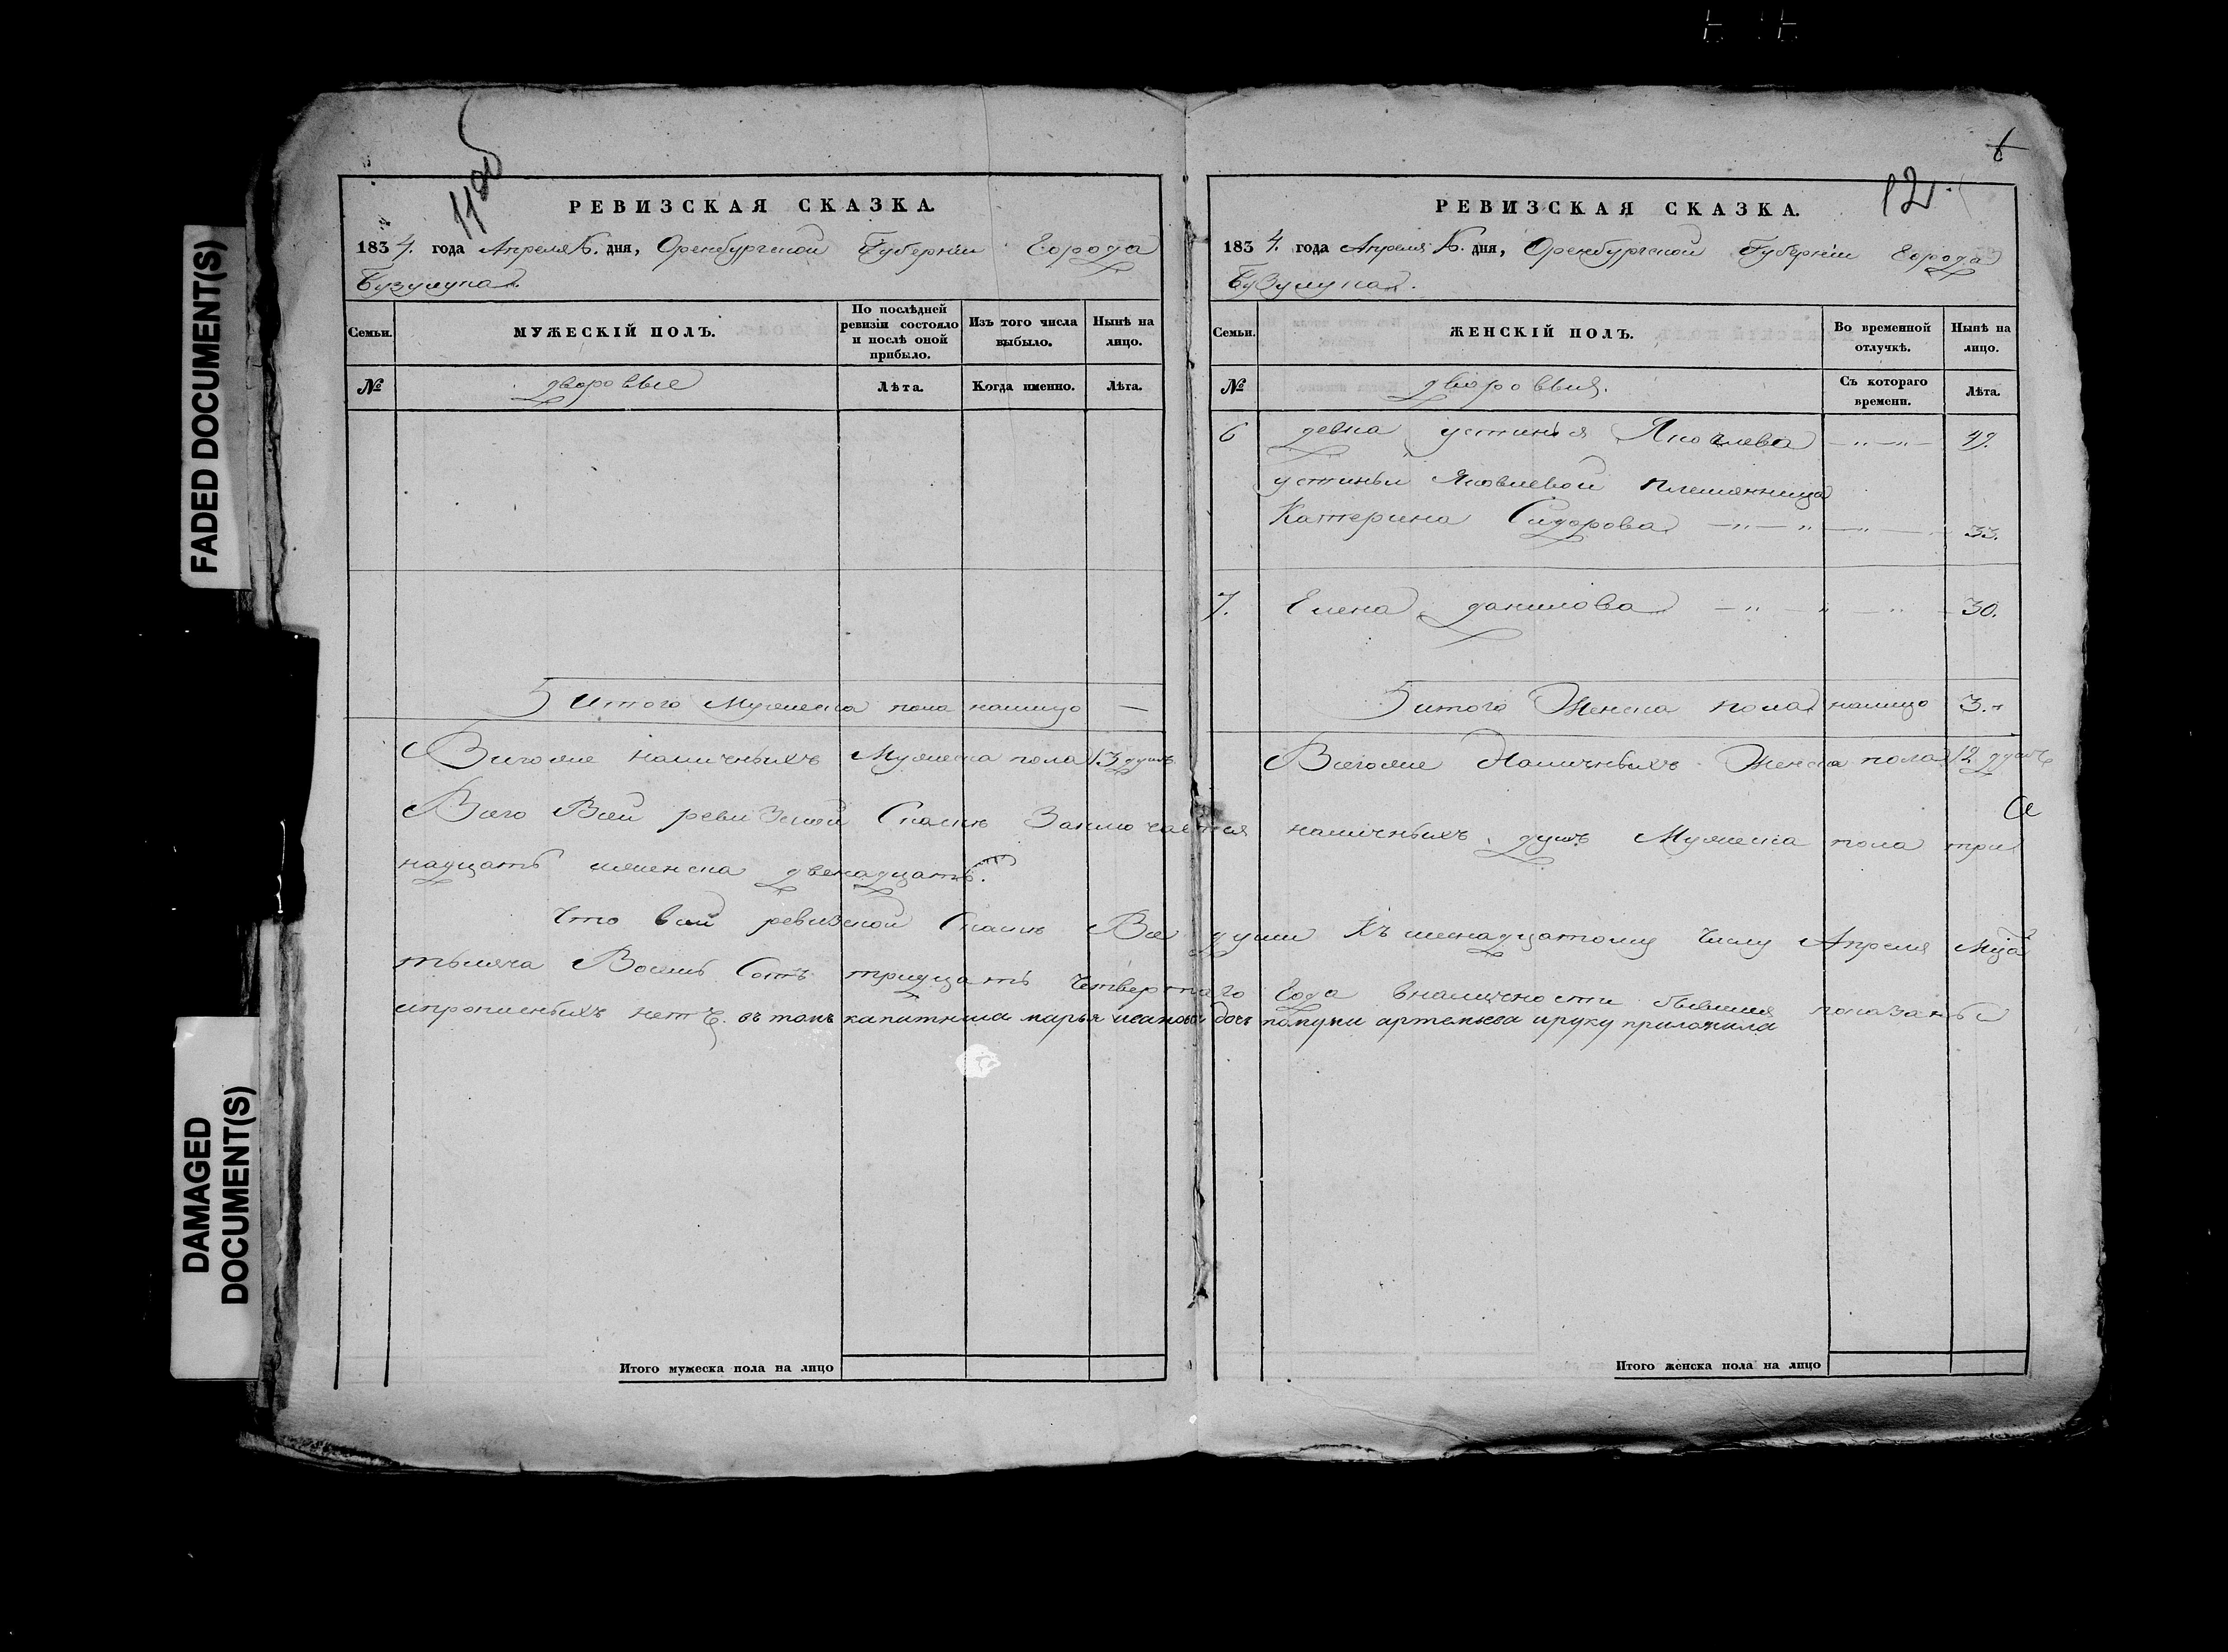 FADED DOCUMENT(S)
DAMAGED DOCUMENT(S)
11об
РЕВИЗСКАЯ СКАЗКА.
1834. года Апреля 16. дня, Оренбургской Губернiи Города
Бузулука.
Семьи. МУЖЕСКIЙ ПОЛЪ. По послѣдней ревизiи состояло и послѣ оной прибыло. Изъ того числа выбыло. Нынѣ на лицо.
№ дворовые Лѣта. Когда именно. Лѣта.
Итого Мужеска пола налицо —
Всегоже наличныхъ Мужеска пола 13 душъ
Итого мужеска пола на лицо
6
12.
РЕВИЗСКАЯ СКАЗКА.
1834. года Апреля 16. дня, Оренбургской Губернiи Города
Бузулука.
Семьи. ЖЕНСКIЙ ПОЛЪ. Во временной отлучкѣ. Нынѣ на лицо.
№ дворовыя. Съ котораго времени. Лѣта.
6 девка устинья Яковлева —„—„— 49.
устиньи Яковлевой племянница
Катерина Сидорова —„—„—„— 33.
7. Елена данилова —„—„—„— 30.
итого Женска пола налицо 3.
Всегоже Наличныхъ Женска пола 12 душъ
Всего Всей ревизской Скаскѣ Заключается наличныхъ душъ Мужеска пола три
надцать иженска двенадцать.
Что всей ревизской Скаскѣ Все души Къ шенадцатому числу Апреля Мца
тысяча Восемь Сотъ тридцать Четвертаго Года вналичности бывшия показаны
ипрописныхъ нетъ. въ томъ капитанша марья иванова дочь помужи артемьева ируку приложила
Итого женска пола на лицо